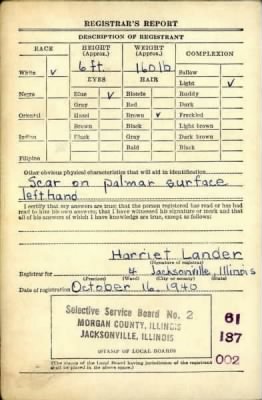 REGISTRAR'S REPORT
DESCRIPTION OF REGISTRANT
RACE HEIGHT (Approx.) WEIGHT (Approx.) COMPLEXION
White ✓ 6 ft. 160 lb Sallow
EYES HAIR Light ✓
Negro Blue ✓ Blonde Ruddy
Gray Red Dark
Oriental Hazel Brown ✓ Freckled
Brown Black Light brown
Indian Black Gray Dark brown
Bald Black
Filipino
Other obvious physical characteristics that will aid in identification
Scar on palmar surface
left hand
I certify that my answers are true; that the person registered has read or has had
read to him his own answers; that I have witnessed his signature or mark and that
all of his answers of which I have knowledge are true, except as follows:
Harriet Lander
(Signature of registrar)
Registrar for 4 Jacksonville, Illinois
(Precinct) (Ward) (City or county) (State)
Date of registration October 16, 1940
Selective Service Board No. 2
MORGAN COUNTY, ILLINOIS
JACKSONVILLE, ILLINOIS
61
187
002
(STAMP OF LOCAL BOARD)
(The stamp of the Local Board having jurisdiction of the registrant
shall be placed in the above space.)